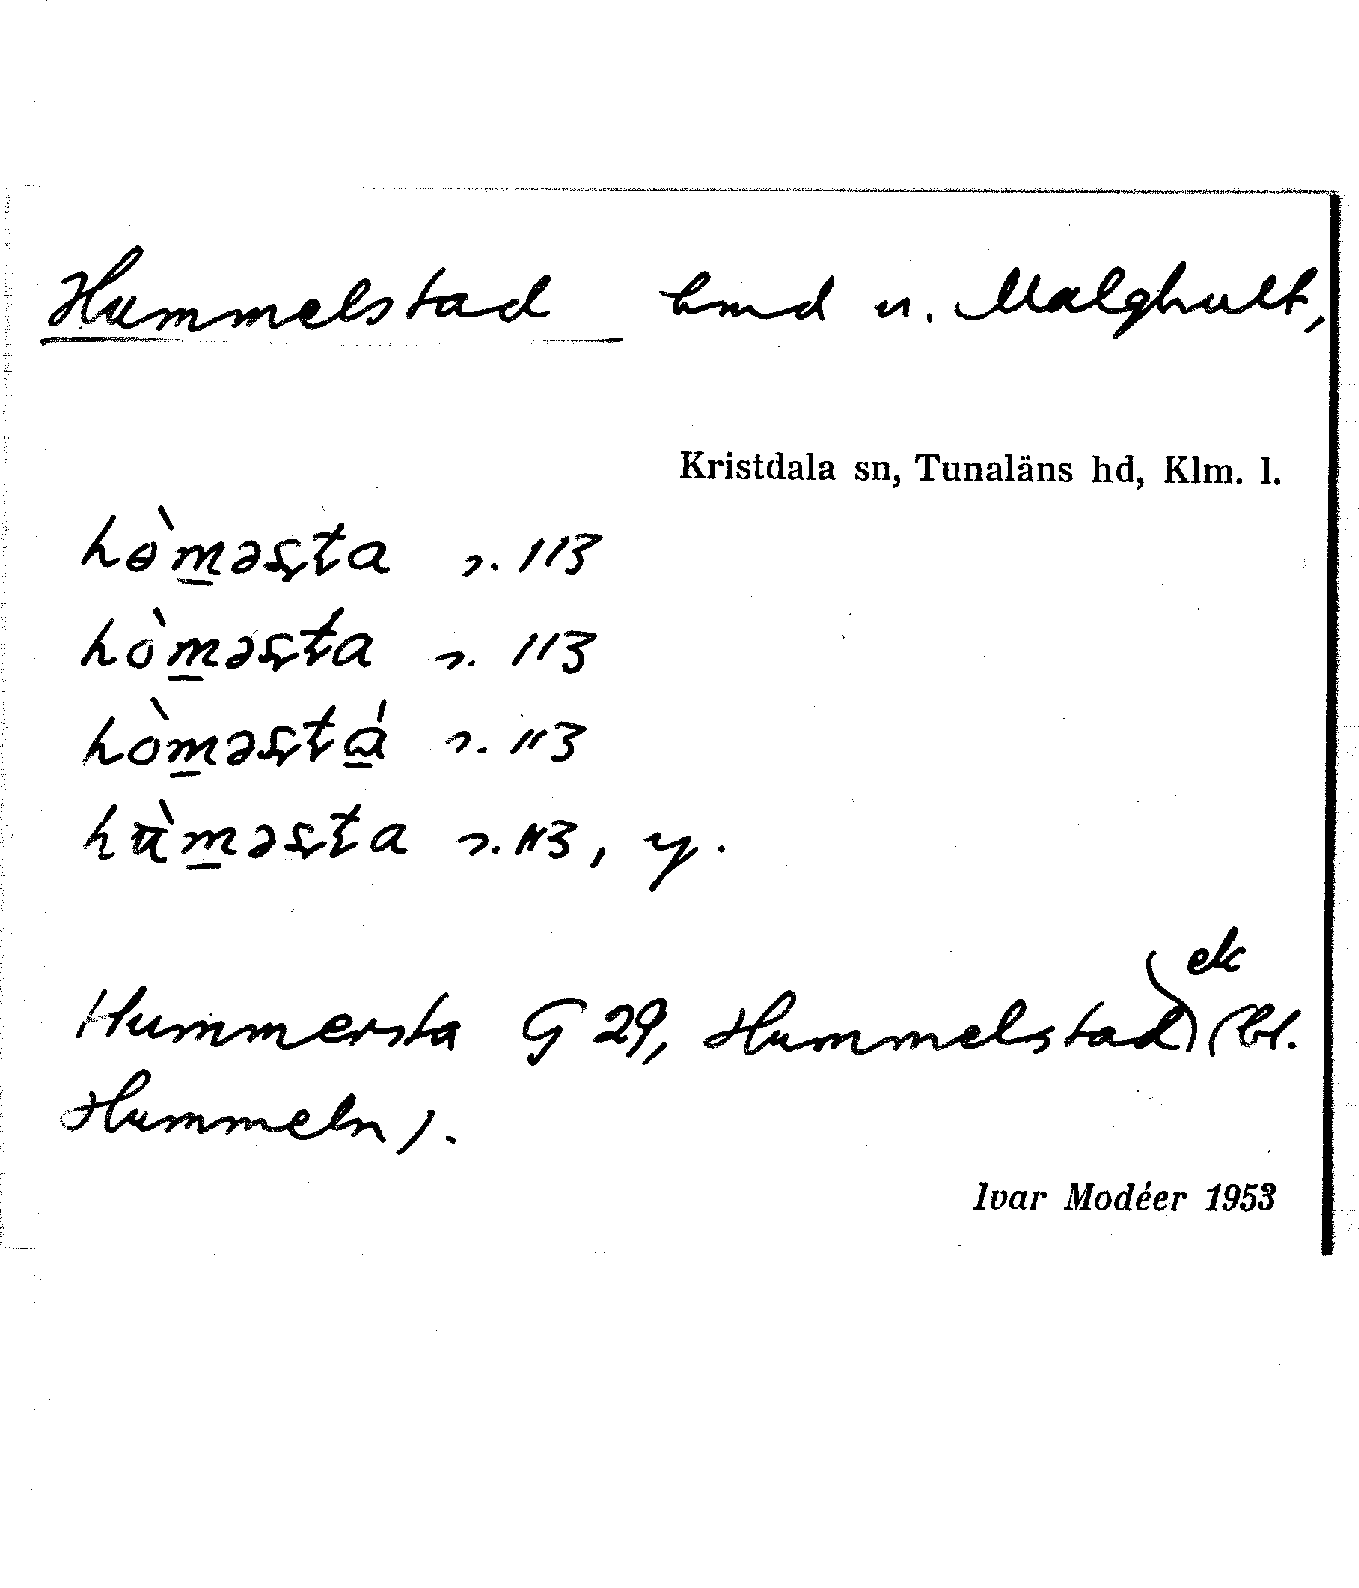 Hummelstad hmd u. Malghult,
Kristdala sn, Tunaläns hd, Klm. l.
hɵ̀m̲əʂʈa s. 113
hòm̲əʂʈa s. 113
hòm̲əʂʈá̲ s. 113
m̲əʂʈa s. 113, y.
Hummersta G 29, Hummelstad) ek (bl.
Hummeln).
Ivar Modéer 1953